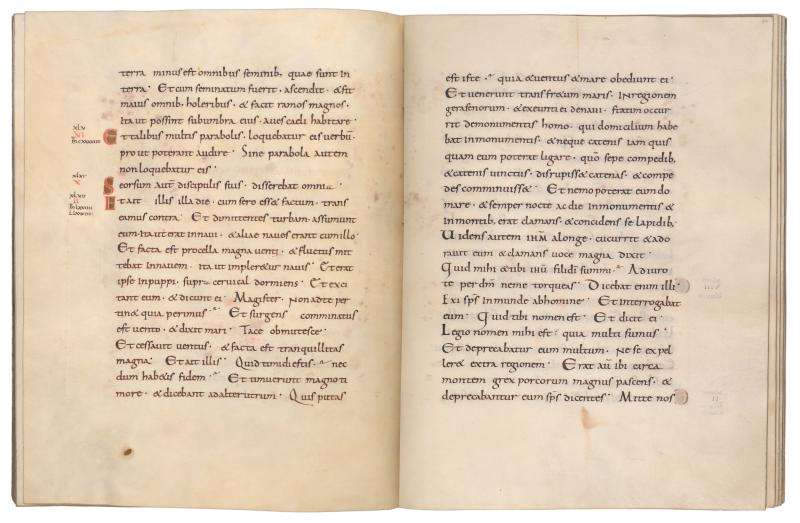 terra minus est omnibus seminib; quae sunt in
terra · Et cum seminatum fuerit · ascendit · & fit
maius omnib; holeribus · & facit ramos magnos ·
ita ut possint sub umbra eius · aues caeli habitare ·
Et talibus multis parabolis · loquebatur eis uerbū ·
prout poterant audire · Sine parabola autem
non loquebatur eis ·
Seorsum autē discipulis suis · disserebat omnia ·
Et ait illis illa die · cum sero esset factum · trans
eamus contra · Et dimittentes turbam · assumunt
eum · ita ut erat in naui · & aliae naues erant cum illo ·
Et facta est procella magna uenti · & fluctus mit
tebat in nauem · ita ut impleretur nauis · Et erat
ipse in puppi · supra ceruical dormiens · Et exci
tant eum · & dicunt ei · Magister · Non ad te per
tinet quia perimus · Et surgens comminatus
est uento · & dixit mari · Tace obmutesce ·
Et cessauit uentus · & facta est tranquillitas
magna · Et ait illis · Quid timidi estis · nec
dum habetis fidem · Et timuerunt magno ti
more · & dicebant ad alterutrum · Quis putas
est iste · quia & uentus & mare obediunt ei ·
Et uenerunt trans fretum maris · In regionem
gerasenorum · & exeunti ei de naui · statim occur
rit de monumentis homo · qui domicilium habe
bat in monumentis · & neque catenis iam quis
quam eum poterat ligare · quō sepe compedib;
& catenis uinctus · disrupisset catenas · & compe
des comminuisset · Et nemo poterat eum do
mare · & semper nocte ac die in monumentis &
in montib; erat clamans · & concidens se lapidib;
Uidens autem ihm̄ a longe · cucurrit & ado
rauit eum & clamans uoce magna dixit ·
Quid mihi & tibi ihū fili dī summi · Adiuro
te per dm̄ ne me torqueas · Dicebat enim illi ·
Exi sps̄ inmunde ab homine · Et interrogabat
eum · Quid tibi nomen est · Et dicit ei ·
Legio nomen mihi est · quia multi sumus ·
Et deprecabatur eum multum · Ne se expel
leret extra regionem · Erat aū ibi circa
montem grex porcorum magnus pascens · &
deprecabantur eum sps̄ dicentes · Mitte nos